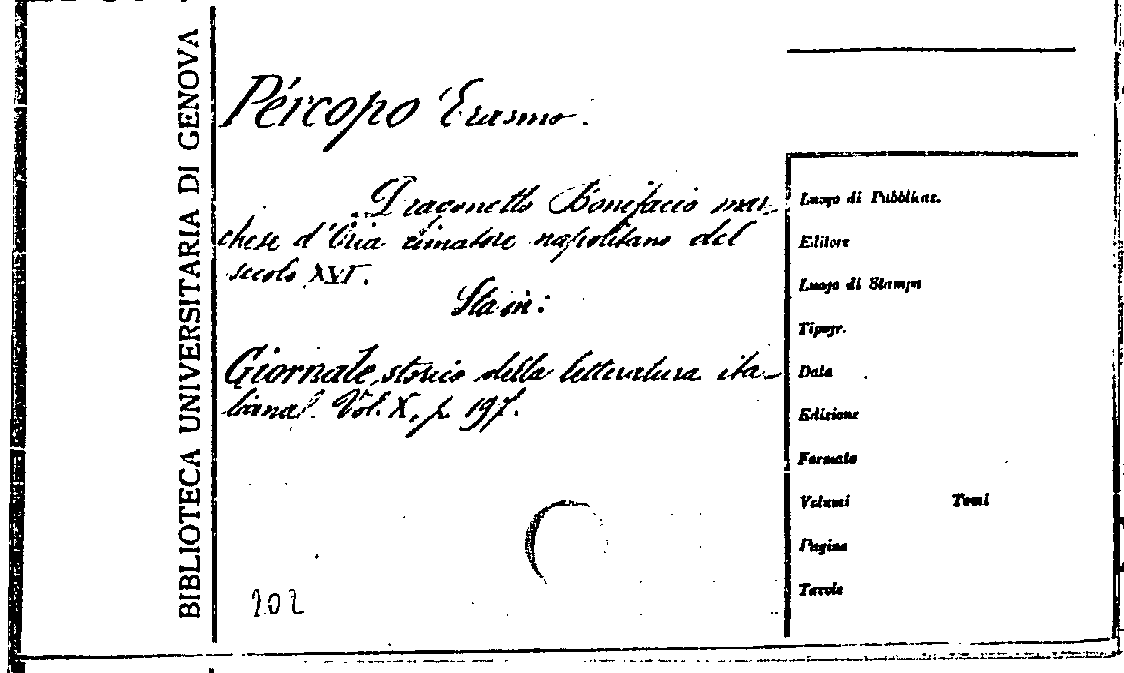 BIBLIOTECA UNIVERSITARIA DI GENOVA
Pércopo Erasmo.
Dragonetto Bonifacio mar-
chese d'Oria rimatore napolitano del
secolo XVI.
Sta in:
Giornale storico della letteratura ita-
liana. Vol. X, p. 197.
202
Luogo di Pubblicaz.
Editore
Luogo di Stampa
Tipogr.
Data
Edizione
Formato
Volumi Tomi
Pagine
Tavole